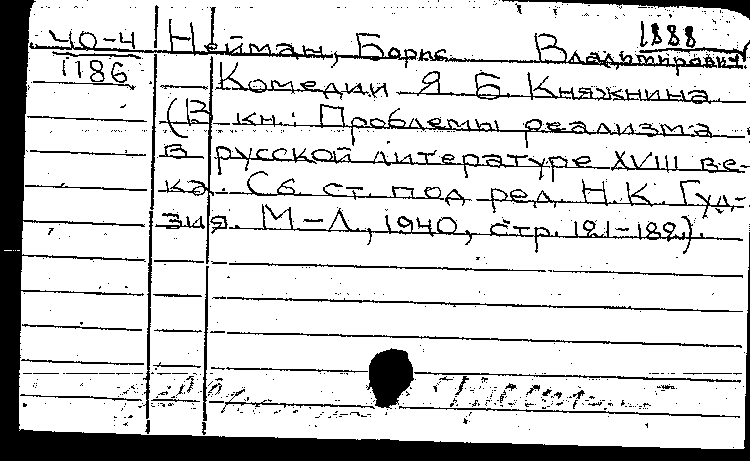 1888
40-4 Нейман, Борис Владимирович
1186 Комедии Я. Б. Княжнина.
(В кн.: Проблемы реализма
в русской литературе XVIII ве-
ка. Сб. ст. под ред. Н. К. Гуд-
зия. М-Л., 1940, стр. 121-182).